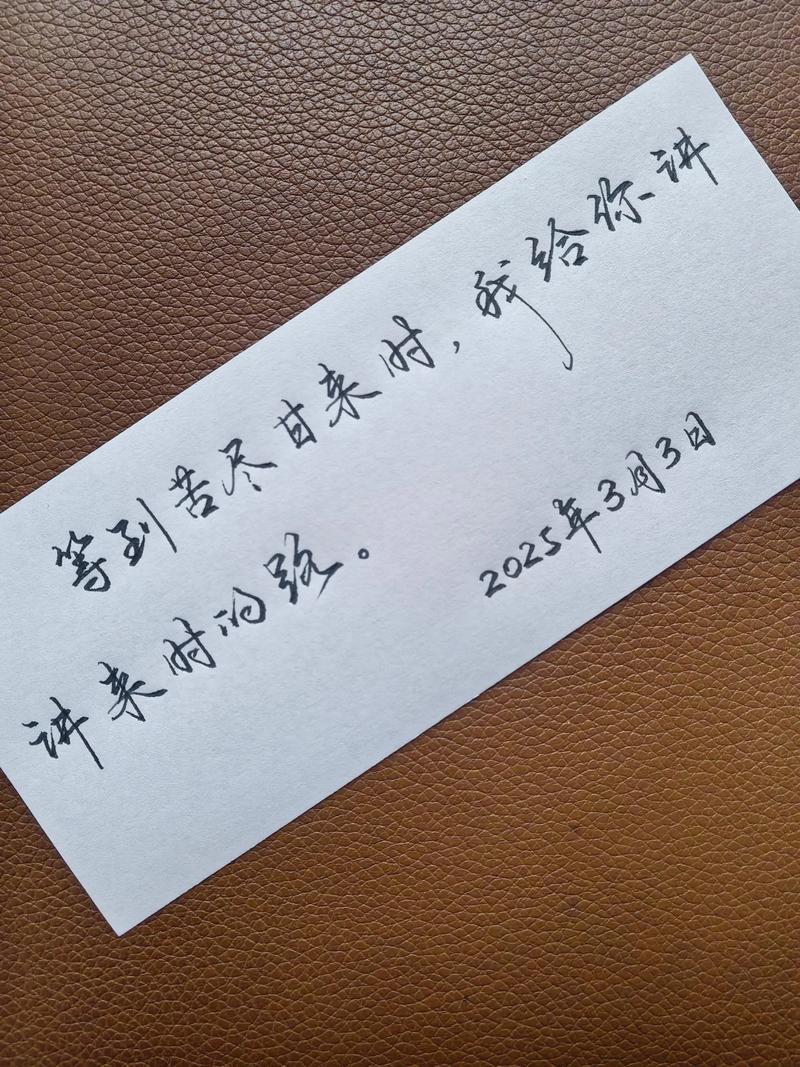 等到苦尽甘来时，我给你讲
讲来时的路。
2025年3月3日